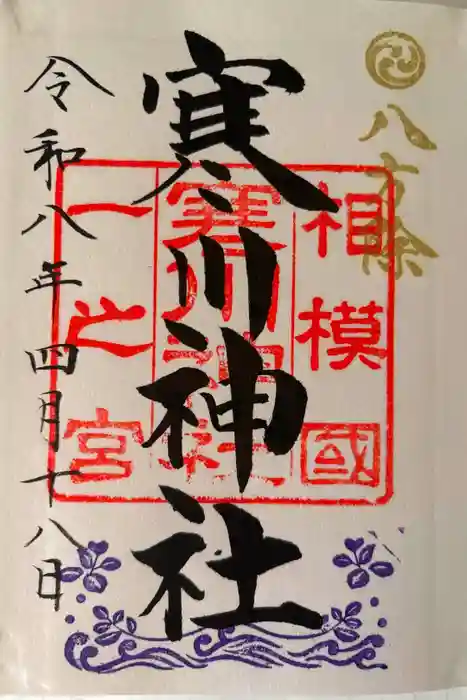 八方除
相模國
寒川神社
一之宮
寒川神社
令和八年四月十八日